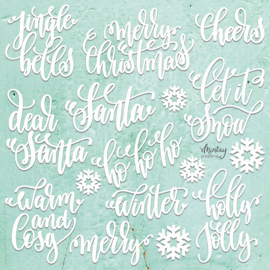 jingle
bells
merry
Christmas
Cheers
dear
Santa
Santa
let it
Snow
ho ho ho
Mintay
warm
and
Cosy
winter
merry
holly
jolly